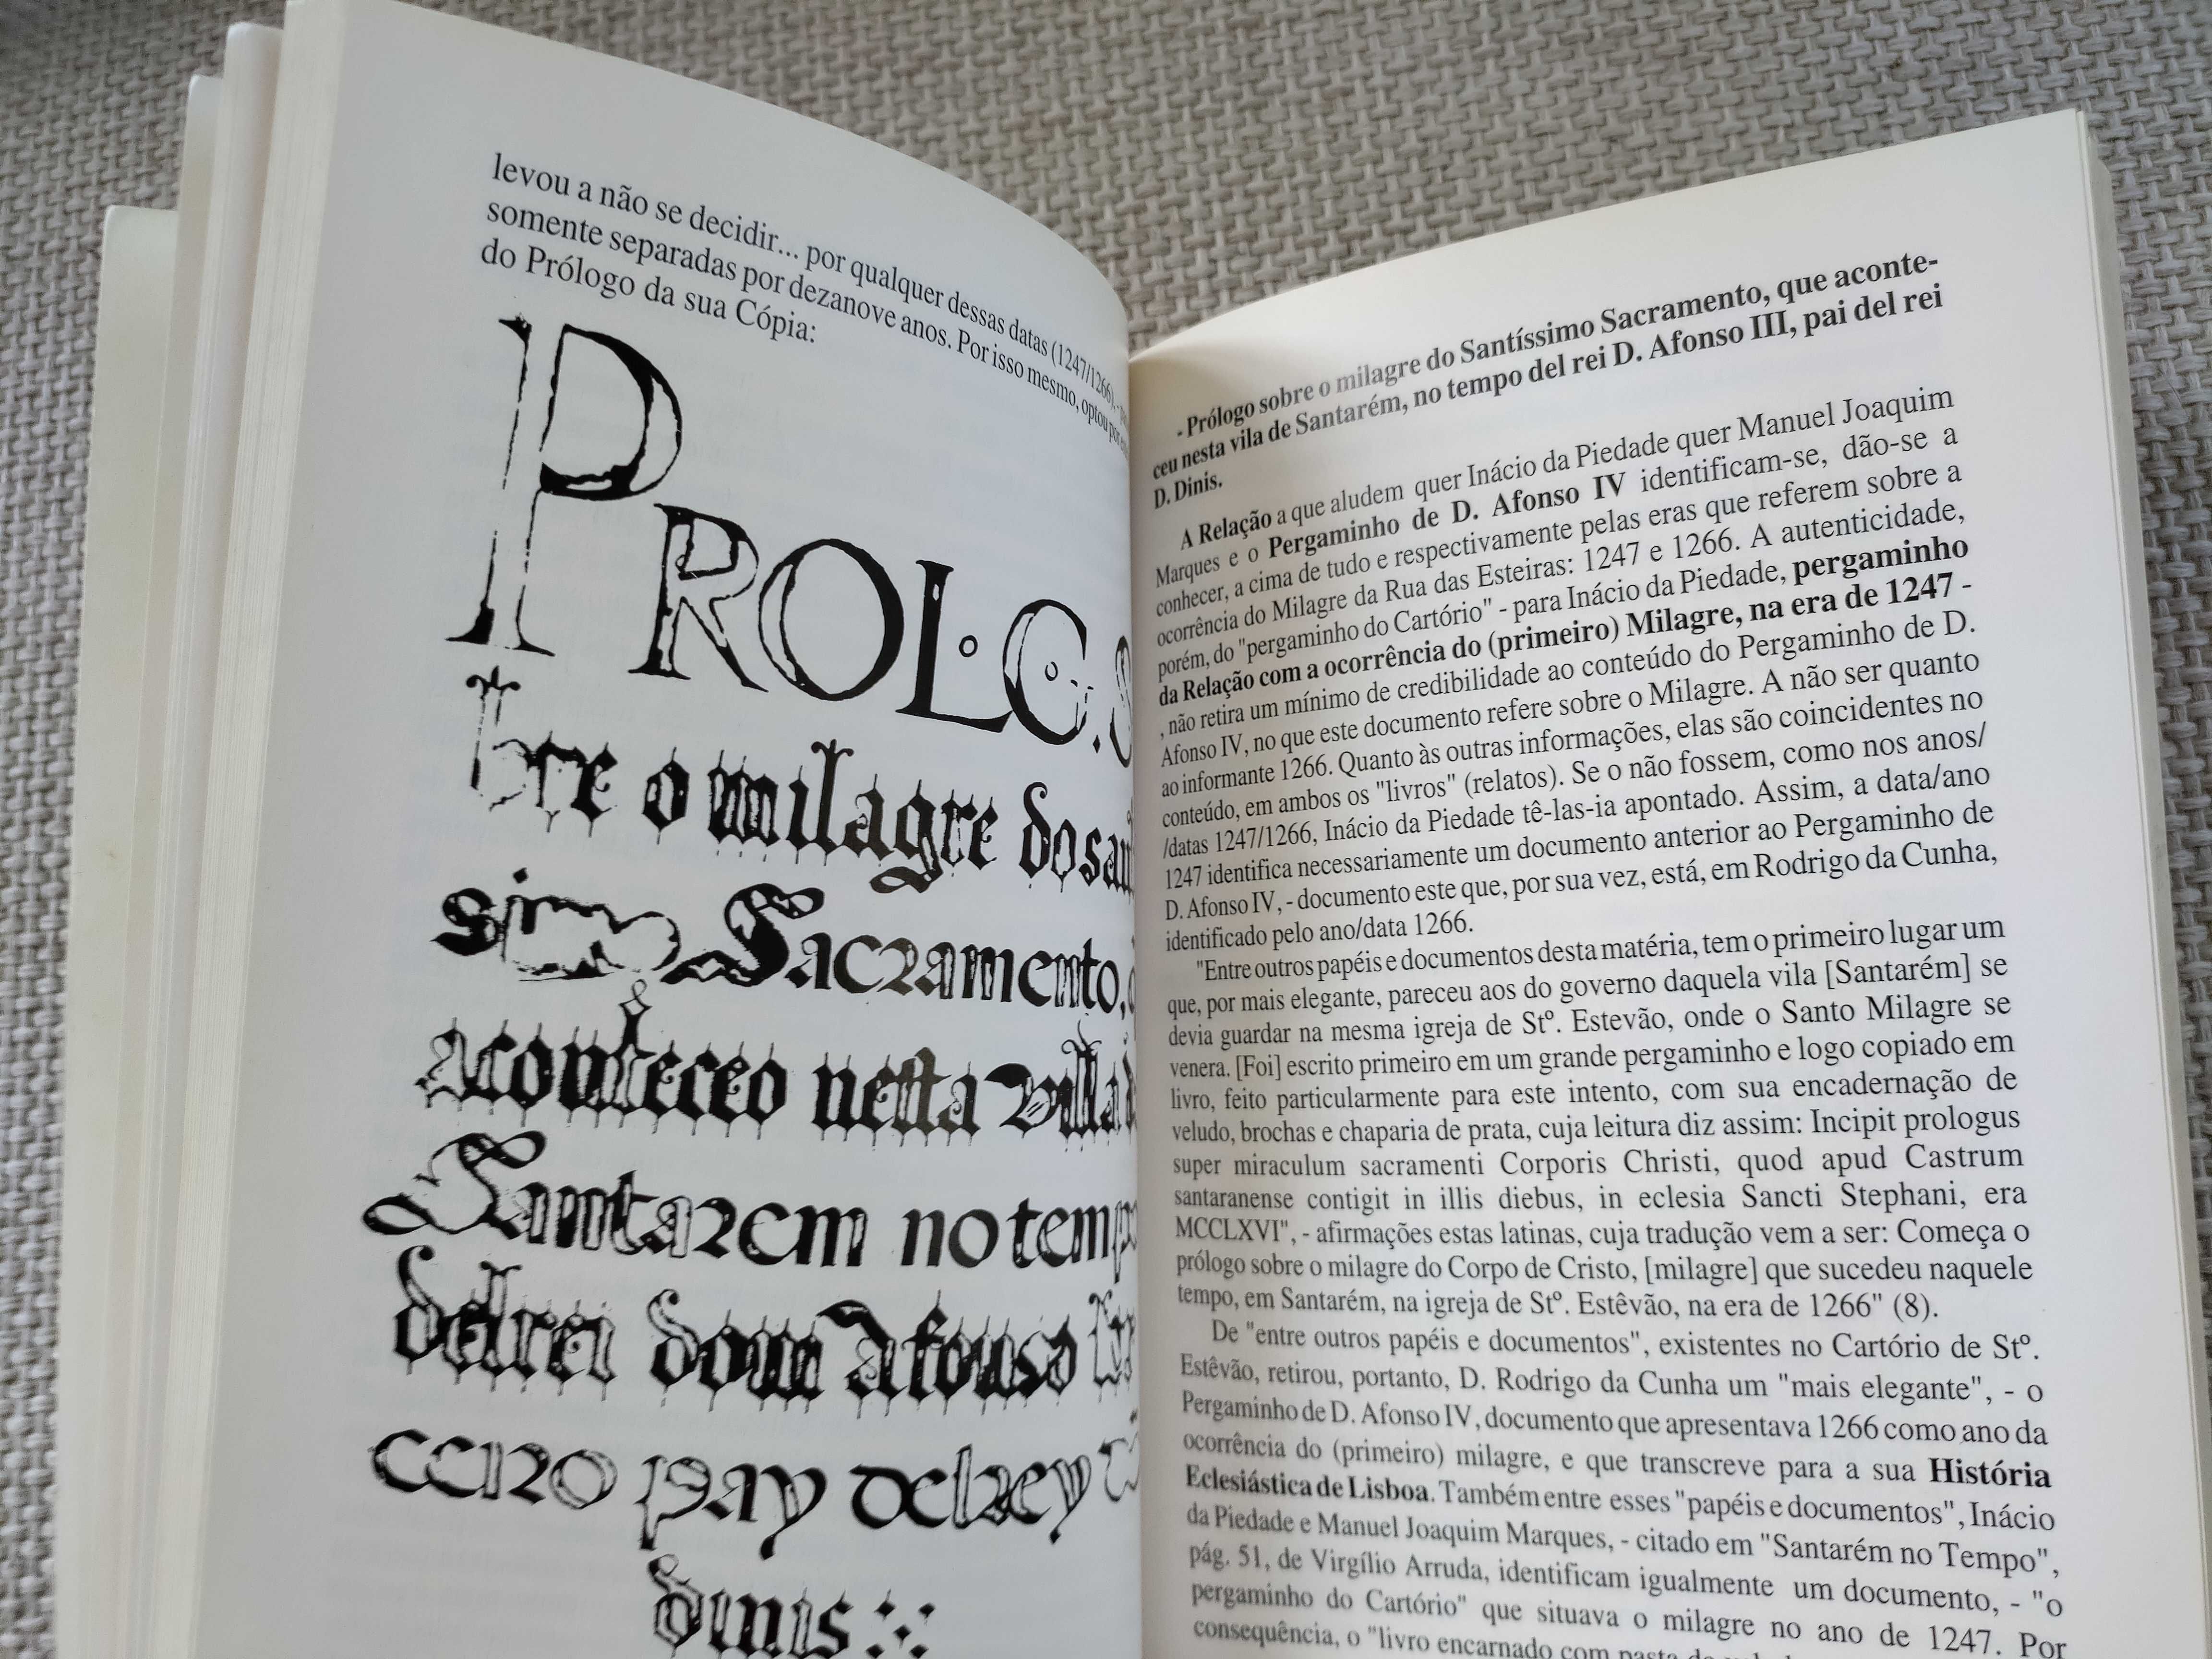 levou a não se decidir... por qualquer dessas datas (1247/1266), -
somente separadas por dezanove anos. Por isso mesmo, optou por
do Prólogo da sua Cópia:
PROLOG.
bre o milagre do
Sacramento,
aconteceo nesta villa
Santarem no temp
delrei dom Afonso
ceiro pay delrey
dinis
- Prólogo sobre o milagre do Santíssimo Sacramento, que aconte-
ceu nesta vila de Santarém, no tempo del rei D. Afonso III, pai del rei
D. Dinis.
A Relação a que aludem quer Inácio da Piedade quer Manuel Joaquim
Marques e o Pergaminho de D. Afonso IV identificam-se, dão-se a
conhecer, a cima de tudo e respectivamente pelas eras que referem sobre a
ocorrência do Milagre da Rua das Esteiras: 1247 e 1266. A autenticidade,
porém, do "pergaminho do Cartório" - para Inácio da Piedade, pergaminho
da Relação com a ocorrência do (primeiro) Milagre, na era de 1247 -
, não retira um mínimo de credibilidade ao conteúdo do Pergaminho de D.
Afonso IV, no que este documento refere sobre o Milagre. A não ser quanto
ao informante 1266. Quanto às outras informações, elas são coincidentes no
conteúdo, em ambos os "livros" (relatos). Se o não fossem, como nos anos/
/datas 1247/1266, Inácio da Piedade tê-las-ia apontado. Assim, a data/ano
1247 identifica necessariamente um documento anterior ao Pergaminho de
D. Afonso IV, - documento este que, por sua vez, está, em Rodrigo da Cunha,
identificado pelo ano/data 1266.
"Entre outros papéis e documentos desta matéria, tem o primeiro lugar um
que, por mais elegante, pareceu aos do governo daquela vila [Santarém] se
devia guardar na mesma igreja de Stº. Estevão, onde o Santo Milagre se
venera. [Foi] escrito primeiro em um grande pergaminho e logo copiado em
livro, feito particularmente para este intento, com sua encadernação de
veludo, brochas e chaparia de prata, cuja leitura diz assim: Incipit prologus
super miraculum sacramenti Corporis Christi, quod apud Castrum
santaranense contigit in illis diebus, in eclesia Sancti Stephani, era
MCCLXVI", - afirmações estas latinas, cuja tradução vem a ser: Começa o
prólogo sobre o milagre do Corpo de Cristo, [milagre] que sucedeu naquele
tempo, em Santarém, na igreja de Stº. Estêvão, na era de 1266" (8).
De "entre outros papéis e documentos", existentes no Cartório de Stº.
Estêvão, retirou, portanto, D. Rodrigo da Cunha um "mais elegante", - o
Pergaminho de D. Afonso IV, documento que apresentava 1266 como ano da
ocorrência do (primeiro) milagre, e que transcreve para a sua História
Eclesiástica de Lisboa. Também entre esses "papéis e documentos", Inácio
da Piedade e Manuel Joaquim Marques, - citado em "Santarém no Tempo",
pág. 51, de Virgílio Arruda, identificam igualmente um documento, - "o
pergaminho do Cartório" que situava o milagre no ano de 1247. Por
consequência, o "livro encarnado com pasta de